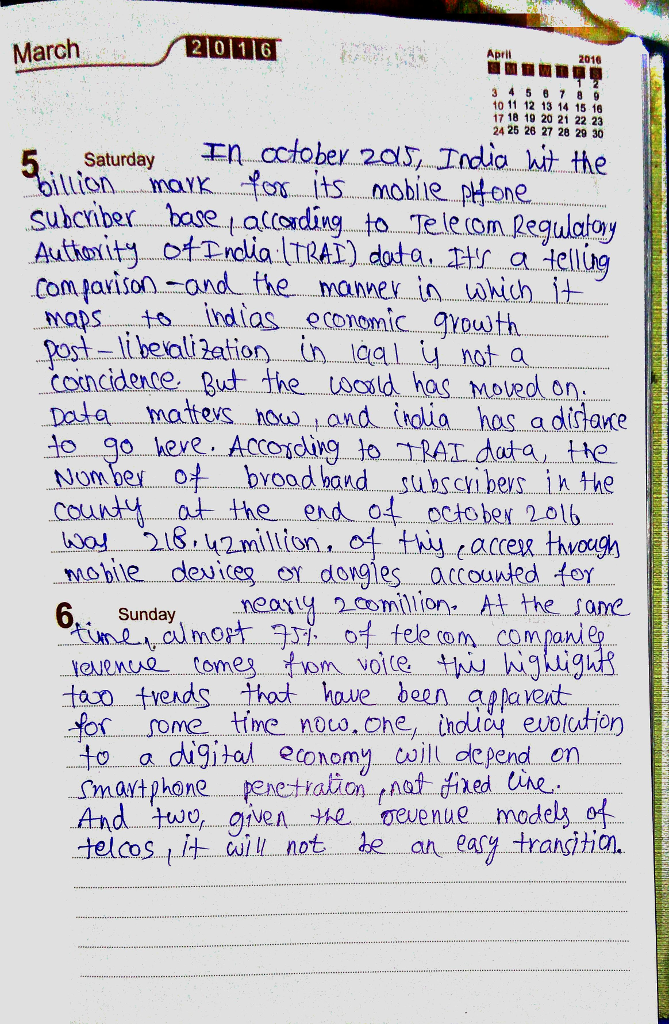 March
2016
April 2016
S M T W T F S
1 2
3 4 5 6 7 8 9
10 11 12 13 14 15 16
17 18 19 20 21 22 23
24 25 26 27 28 29 30
5 Saturday In october 2015, India hit the
billion mark for its mobile phone
subcriber base, according to Telecom Regulatory
Authority of India (TRAI) data. It's a telling
comparison - and the manner in which it
maps to indias economic growth
post-liberalization in 1991 is not a
coincidence. But the world has moved on.
Data matters now, and india has a distance
to go here. According to TRAI data, the
Number of broadband subscribers in the
county at the end of october 2016
was 218.42million. of this, access through
mobile devices or dongles accounted for
6 Sunday nearly 200million. At the same
time, almost 75% of telecom companies
revenue comes from voice. this highlights
two trends that have been apparent
for some time now. one, indias evolution
to a digital economy will depend on
smartphone penetration, not fixed line.
And two, given the revenue models of
telcos, it will not be an easy transition.